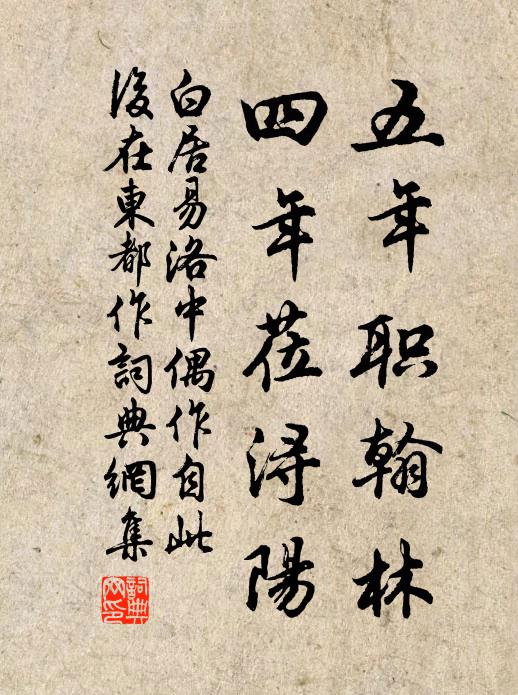 五年职翰林
四年莅浔陽
白居易洛中偶作自此
後在東都作詞典網集
詞典
网印